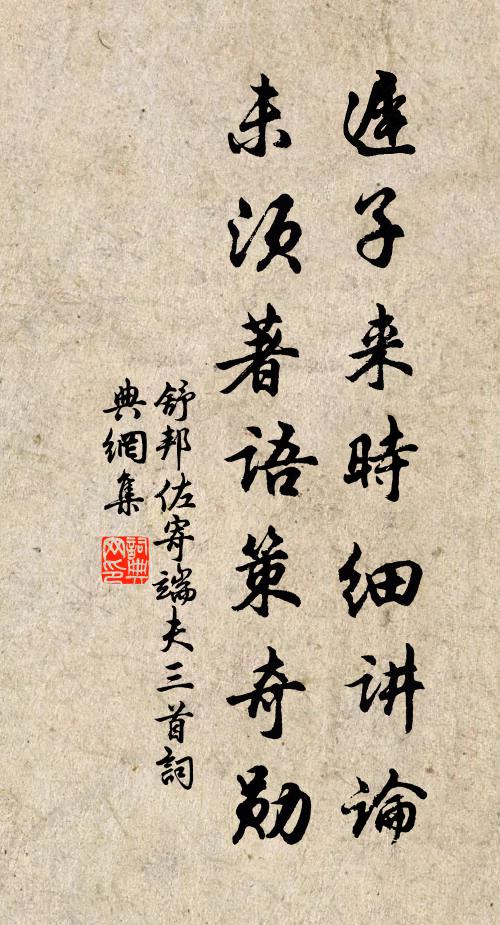 遲子来時細讲論
未須著語策奇勛
舒邦佐寄端夫三首詞
典網集
詞典網印